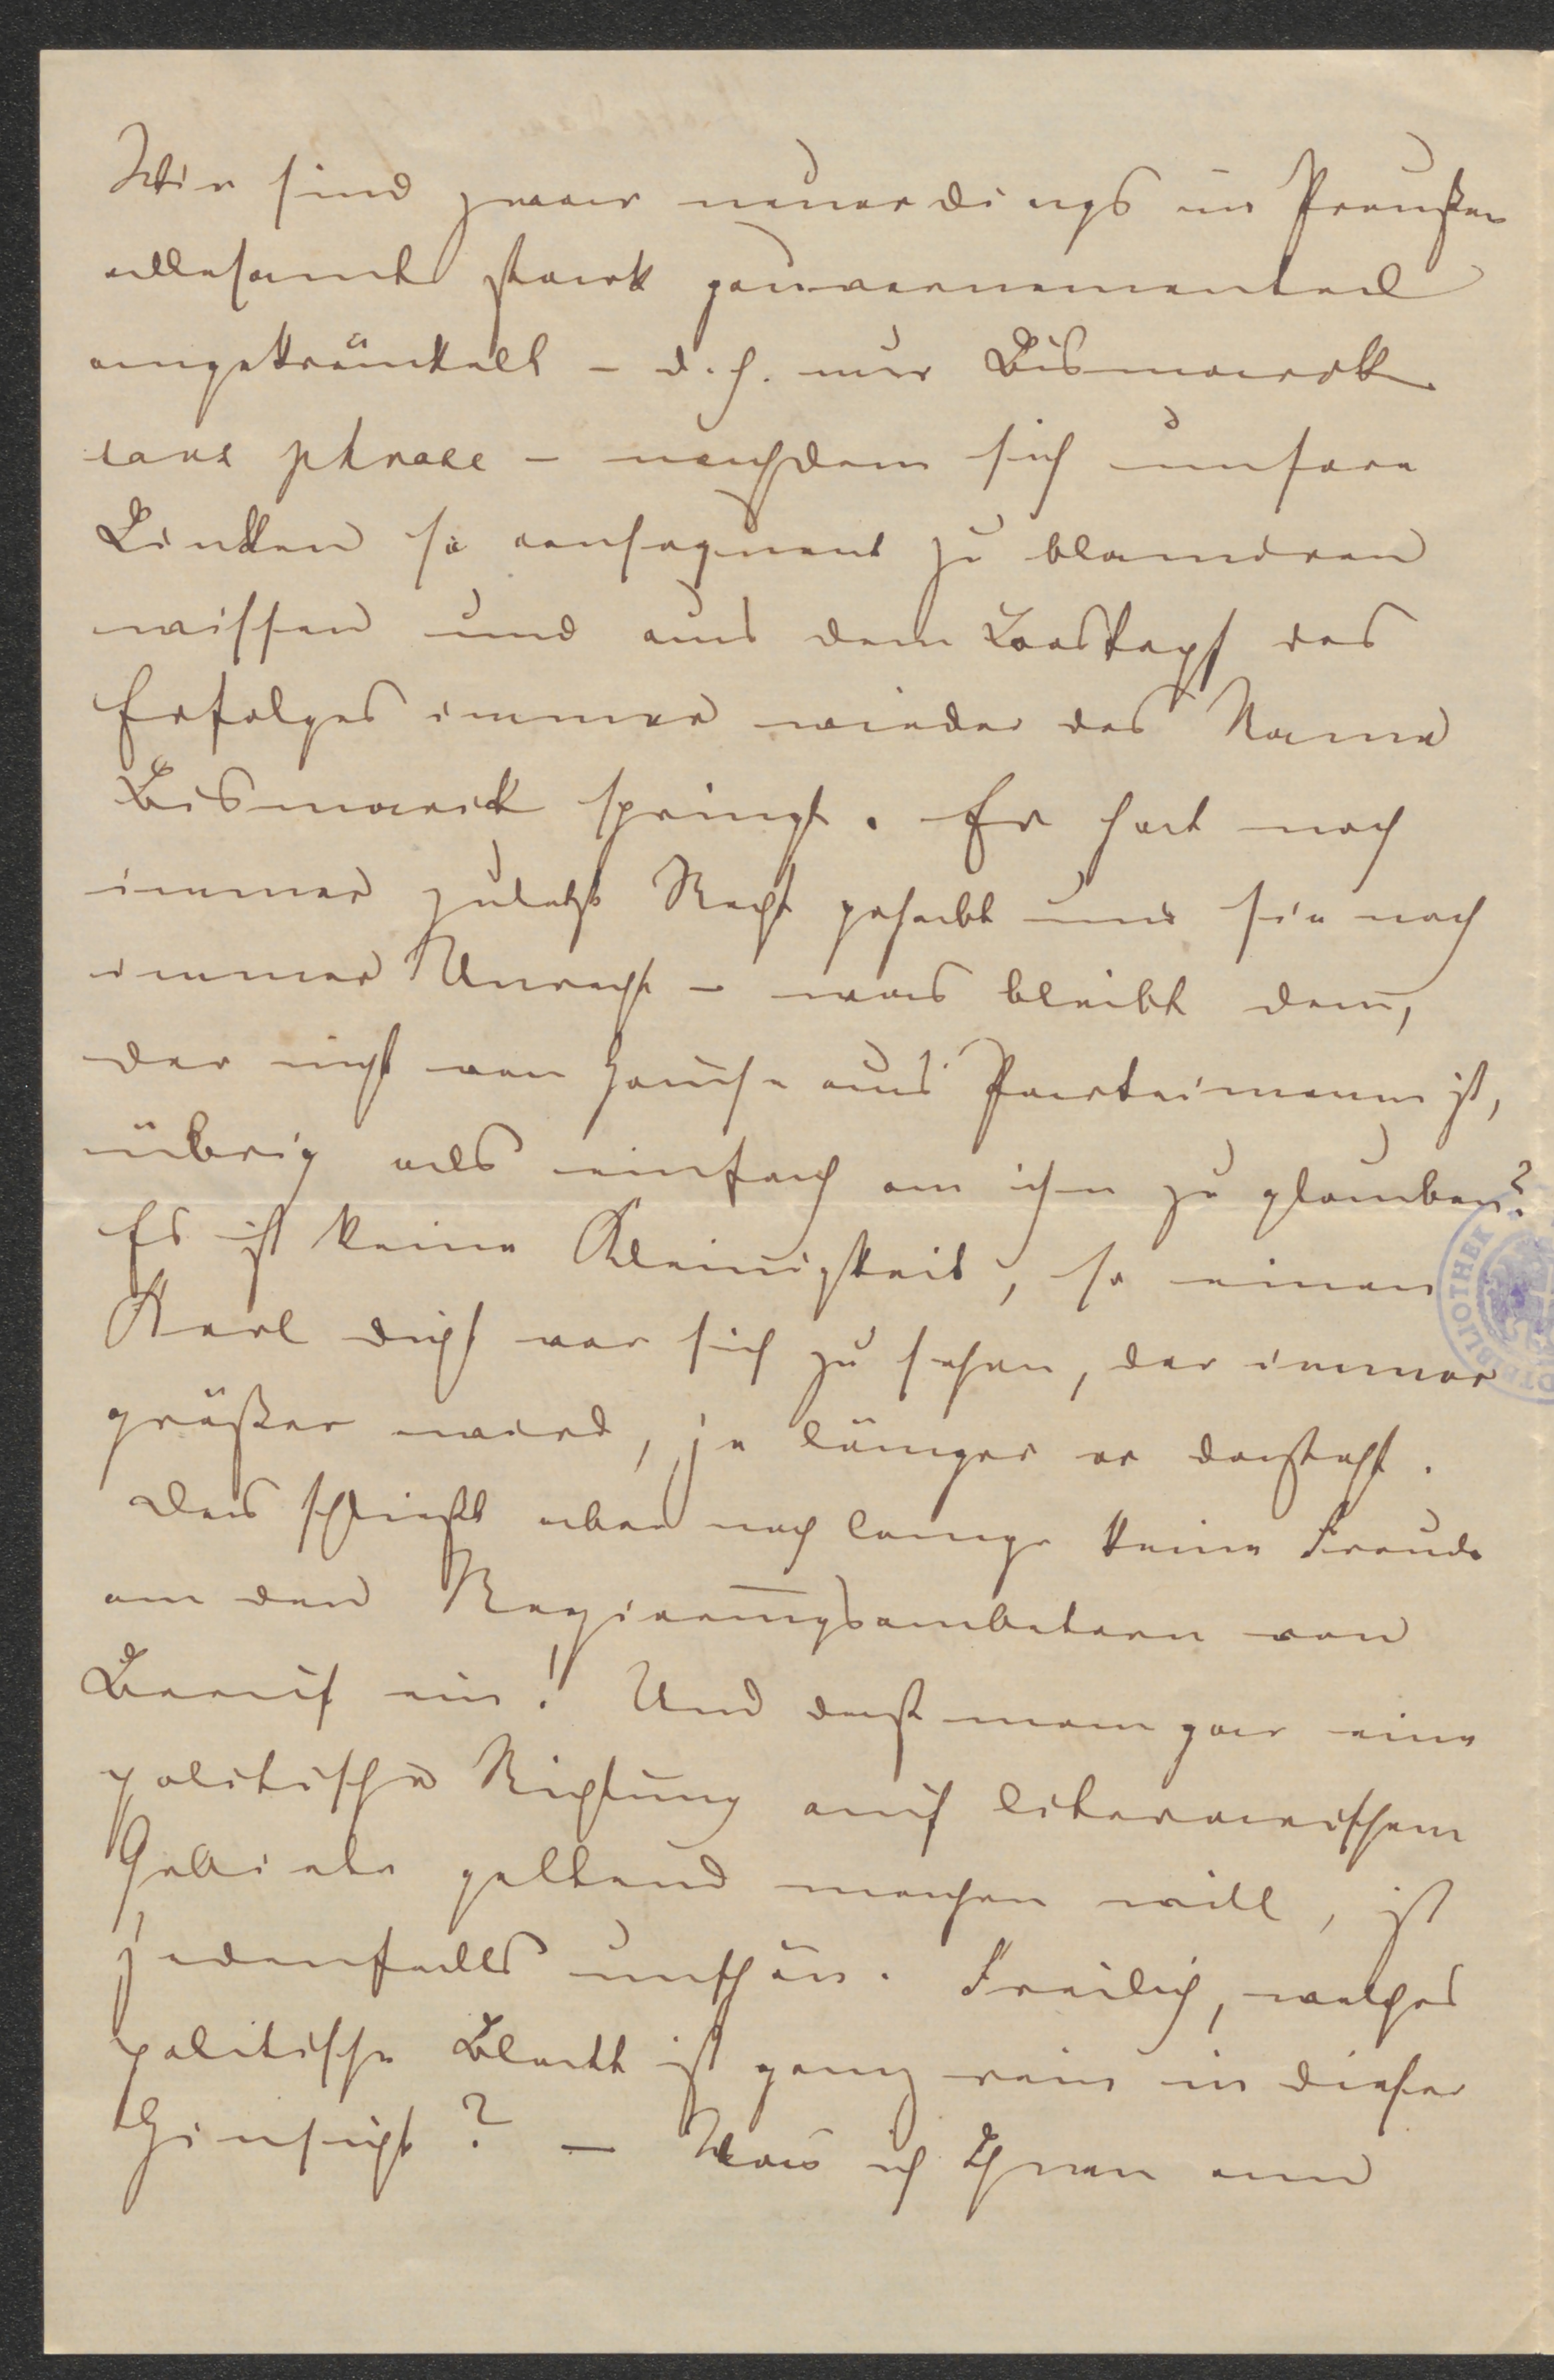 Wir sind zwar neuerdings in Preußen
allesamt stark gouvernemental
angekränkelt – d. h. nur Bismarck
sans phrase – nachdem sich unsere
Linken so consequent zu blamiren
wissen und aus dem Loostopf des
Erfolges immer wieder der Name
Bismarck springt. Er hat noch
immer zuletzt Recht gehabt und sie noch
immer Unrecht – was bleibt dem,
der nicht von Hause aus Parteimann ist,
übrig als einfach an ihn zu glauben?
Es ist keine Kleinigkeit, so einen
Kerl dicht vor sich zu sehen, der immer
größer wird, je länger er dasteht.
Das schließt aber noch lange keine Freude
an den Regierungsanbetern von
Beruf ein! Und daß man gar eine
politische Richtung auf literarischem
Gebiete geltend machen will, ist
jedenfalls unschön. Freilich, welches
politische Blatt ist ganz rein in dieser
Hinsicht? – Was ich Ihnen an
BIBLIOTHEK